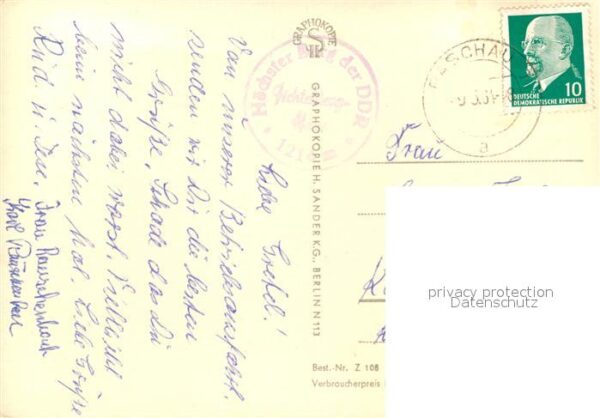 Liebe Gretel!
Von unserer Betriebsausfahrt
senden wir Dir die besten
Grüße, Schade das Du
nicht dabei warst. Vielleicht
beim nächsten Mal. Liebe Grüße
Rud. u.
Frau
GRAPHOKOPIE
GRAPHOKOPIE H. SANDER K.G., BERLIN N 113
Höchster Berg der DDR
Fichtelberg
1214 m
RASCHAU
a
DEUTSCHE
DEMOKRATISCHE REPUBLIK
10
Frau
privacy protection
Datenschutz
Best.-Nr. Z 108
Verbraucherpreis